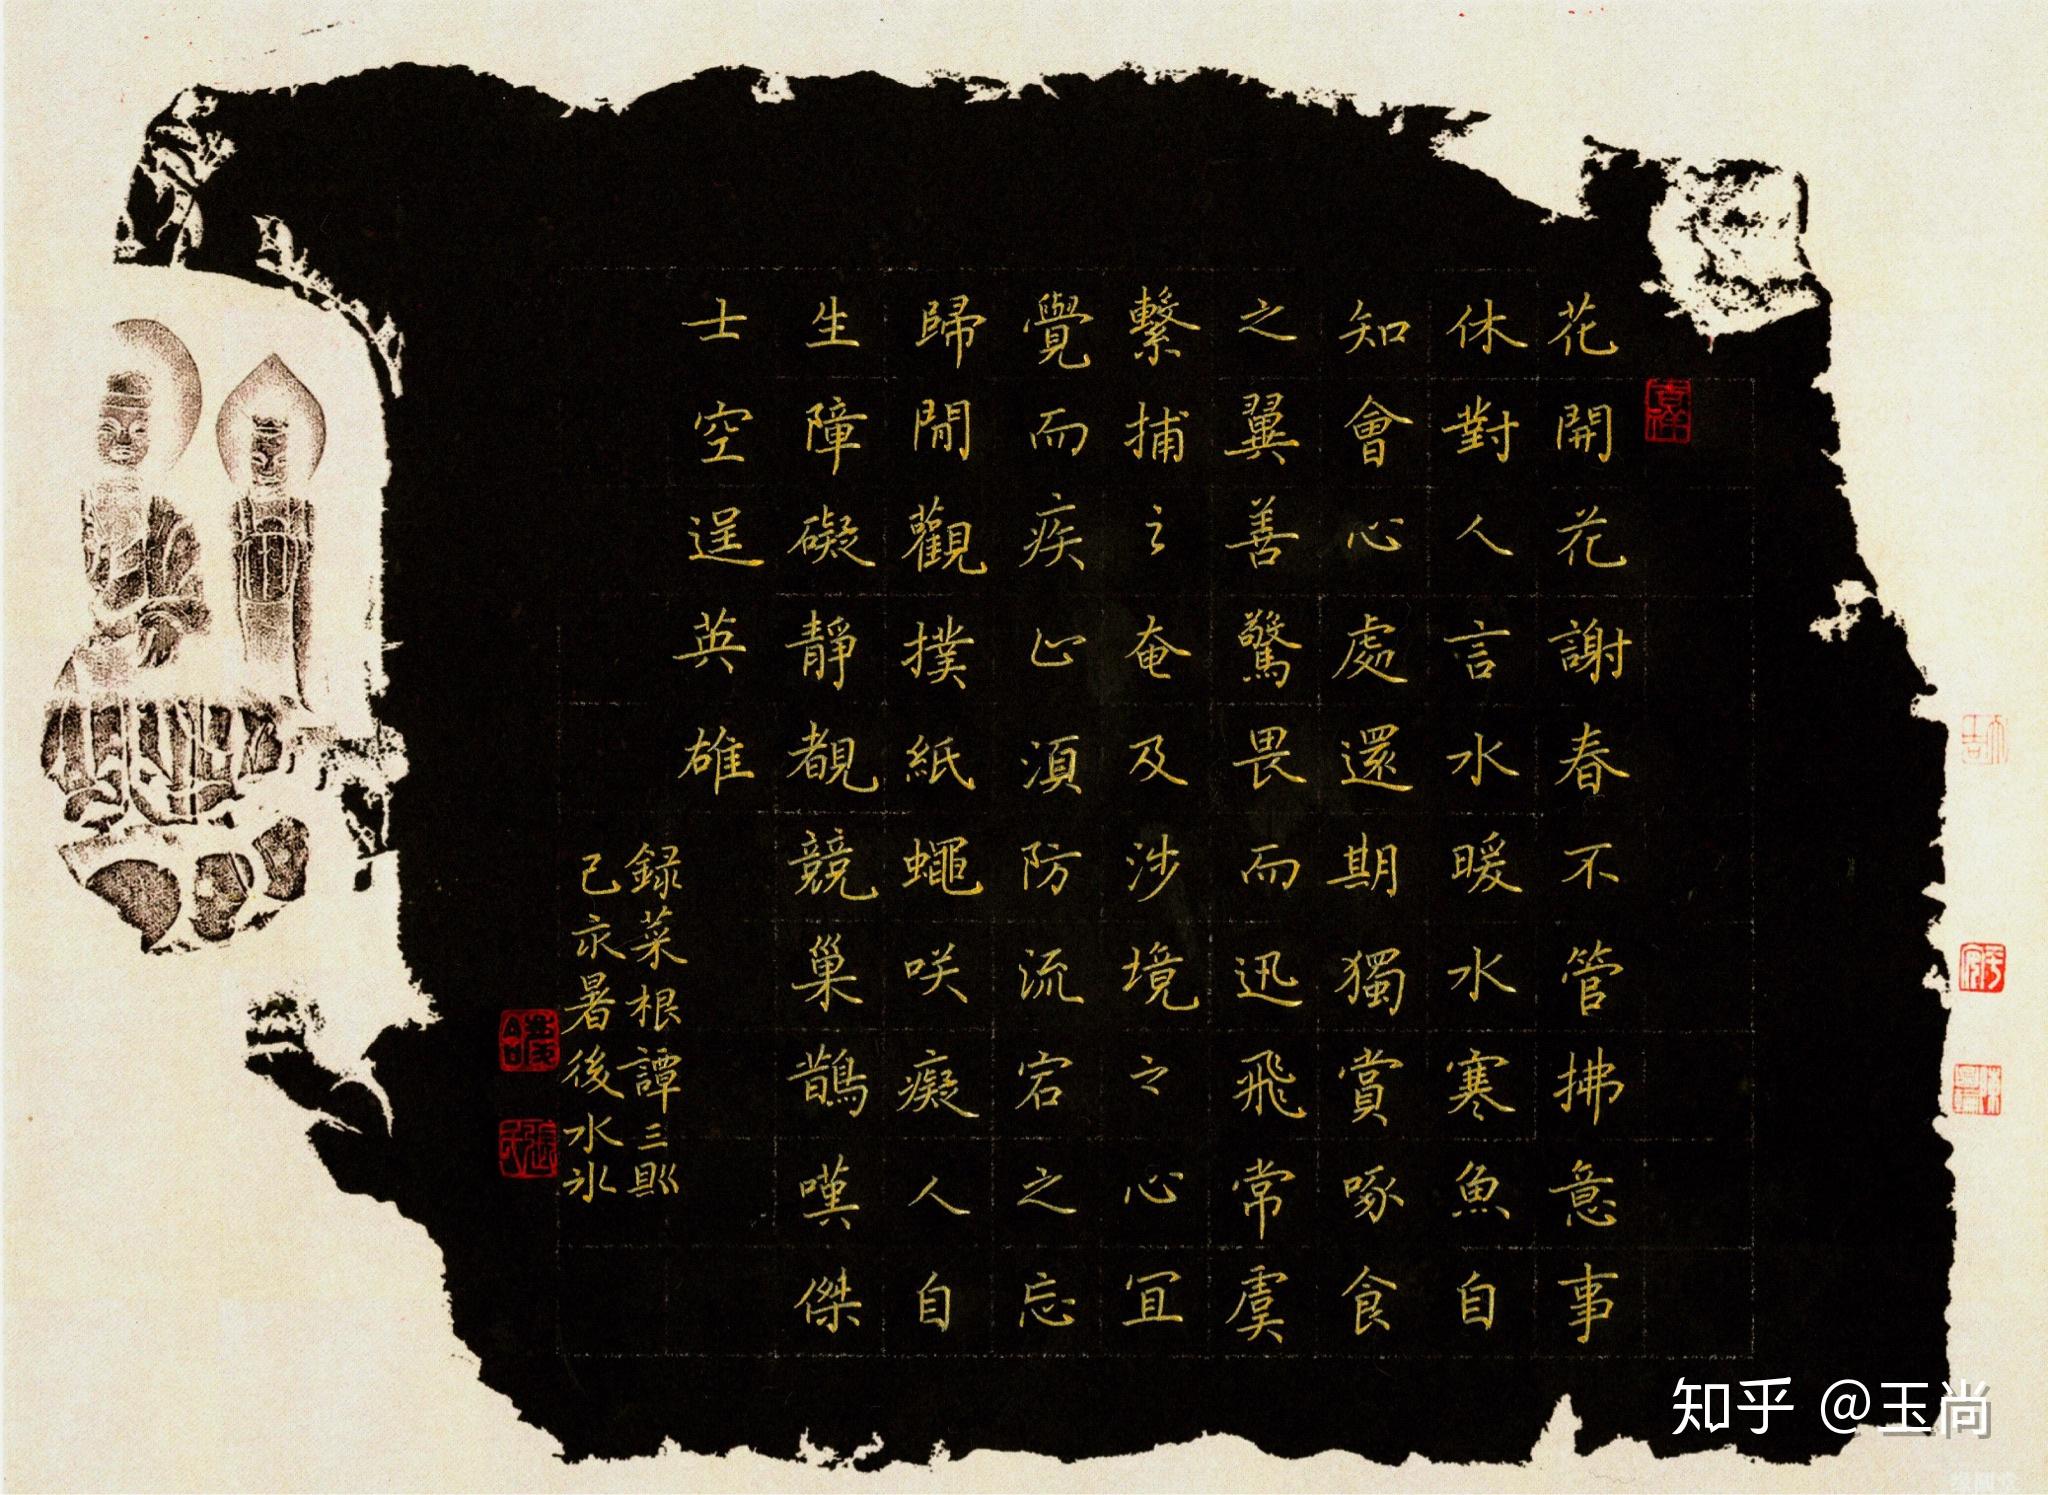 花開花謝春不管拂意事
休對人言水暖水寒魚自
知會心處還期獨賞啄食
之翼善驚畏而迅飛常虞
繫捕之奄及涉境之心宜
覺而疾止須防流宕之忘
歸閒觀撲紙蠅咲癡人自
生障礙靜覩競巢鵲嘆傑
士空逞英雄
録菜根譚三則
己亥暑後水氷
知乎 @玉尚